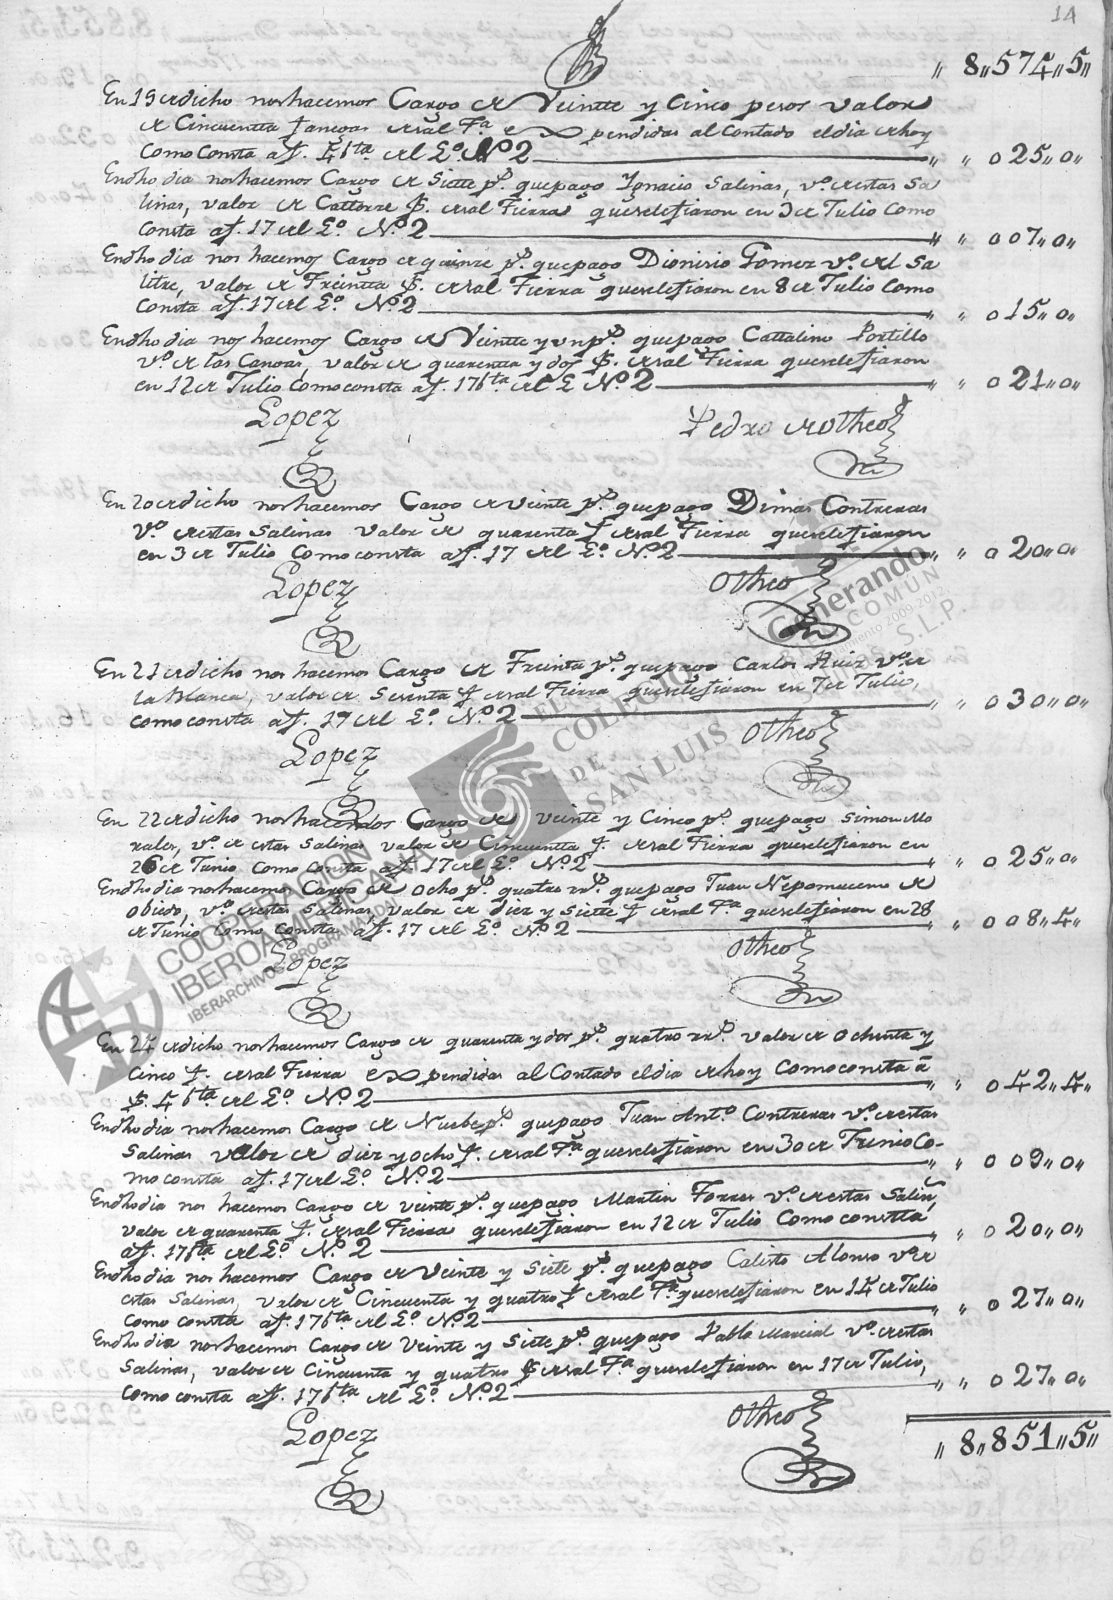 14
„ 8„574„5„
En 19 de dicho nos hacemos Cargo de Veintte y Cinco pesos valor
de Cincuentta fanegas de sal Tª expendidas al Contado el dia de hoy
Como Consta a f. 4 bta. del Lº Nº 2 „ „ 025„0„
En dho dia nos hacemos Cargo de Siette pˢ. que pago Ygnacio Salinas, vº. de estas Sa
linas, valor de Cattorze f. de sal Tierra que se le fiaron en 3 de Julio Como
Consta a f. 17 del Lº Nº 2 „ „ 007„0„
En dho dia nos hacemos Cargo de quinze pˢ. que pago Dionisio Gomez vº. del Sa
litre, valor de Treintta f. de sal Tierra que se le fiaron en 8 de Julio Como
Consta a f. 17 del Lº Nº 2 „ „ 015„0„
En dho dia nos hacemos Cargo de Veintte y un pˢ. que pago Cattalino Portillo
vº. de las Canoas, valor de quarentta y dos f. de sal Tierra que se le fiaron
en 12 de Julio Como consta a f. 17 bta. del Lº Nº 2 „ „ 021„0„
Lopez Pedro de Otheo
En 20 de dicho nos hacemos Cargo de veinte pˢ. que pago Dimas Contreras
vº. de estas Salinas valor de quarenta f. de sal Tierra que se le fiaron
en 3 de Julio Como consta a f. 17 del Lº. Nº. 2 „ „ 020„0„
Lopez Otheo
En 21 de dicho nos hacemos Cargo de Treinta pˢ. que pago Carlos Ruiz vº. de
la Blanca, valor de Sesenta f. de sal Tierra que se le fiaron en 7 de Julio,
como consta a f. 17 del Lº. Nº. 2 „ „ 030„0„
Lopez Otheo
En 22 de dicho nos hacemos Cargo de veinte y Cinco pˢ. que pago Simon Mo
rales, vº. de estas Salinas valor de Cincuentta f. de sal Tierra que se le fiaron en
26 de Junio Como Consta a f. 17 del Lº. Nº. 2 „ „ 025„0„
En dho dia nos hacemos Cargo de ocho pˢ. quatro rrˢ. que pago Juan Nepomuceno de
Obiedo, vº. de estas Salinas, valor de diez y Siette f. de sal Tª. que se le fiaron en 28
de Junio Como Consta a f. 17 del Lº. Nº. 2 „ „ 008„4„
Lopez Otheo
En 24 de dicho nos hacemos Cargo de quarenta y dos pˢ. quatro rrˢ. valor de ochenta y
Cinco f. de sal Tierra expendidas al Contado el dia de hoy Como consta á
f. 4 bta. del Lº. Nº. 2 „ „ 042„4„
En dho dia nos hacemos Cargo de Nuebe pˢ. que pago Juan Antº. Contreras vº. de estas
Salinas valor de diez y ocho f. de sal Tª. que se le fiaron en 30 de Junio Co-
mo consta a f. 17 del Lº. Nº. 2 „ „ 009„0„
En dho dia nos hacemos Cargo de veinte pˢ. que pago Martin Torres vº. de estas Salins,
valor de quarenta f. de sal Tierra que se le fiaron en 12 de Julio Como constta
a f. 17 bta. del Lº. Nº. 2 „ „ 020„0„
En dho dia nos hacemos Cargo de Veinte y Siete pˢ. que pago Calisto Alonso vº. de
estas Salinas, valor de Cincuenta y quatro f. de sal Tª. que se le fiaron en 14 de Julio
como constta a f. 17 bta. del Lº. Nº. 2 „ „ 027„0„
En dho dia nos hacemos Cargo de Veinte y Siete pˢ. que pago Pablo Marcial vº. de estas
Salinas, valor de Cincuenta y quatro f. de sal Tª. que se le fiaron en 17 de Julio,
como consta a f. 17 bta. del Lº. Nº. 2 „ „ 027„0„
Lopez Otheo
„ 8„851„5„
COOPERACIÓN
IBEROAMERICANA
IBERARCHIVOS PROGRAMA ADAI
EL
COLEGIO
DE
SAN LUIS
Generando
COMÚN
2009-2012
S.L.P.